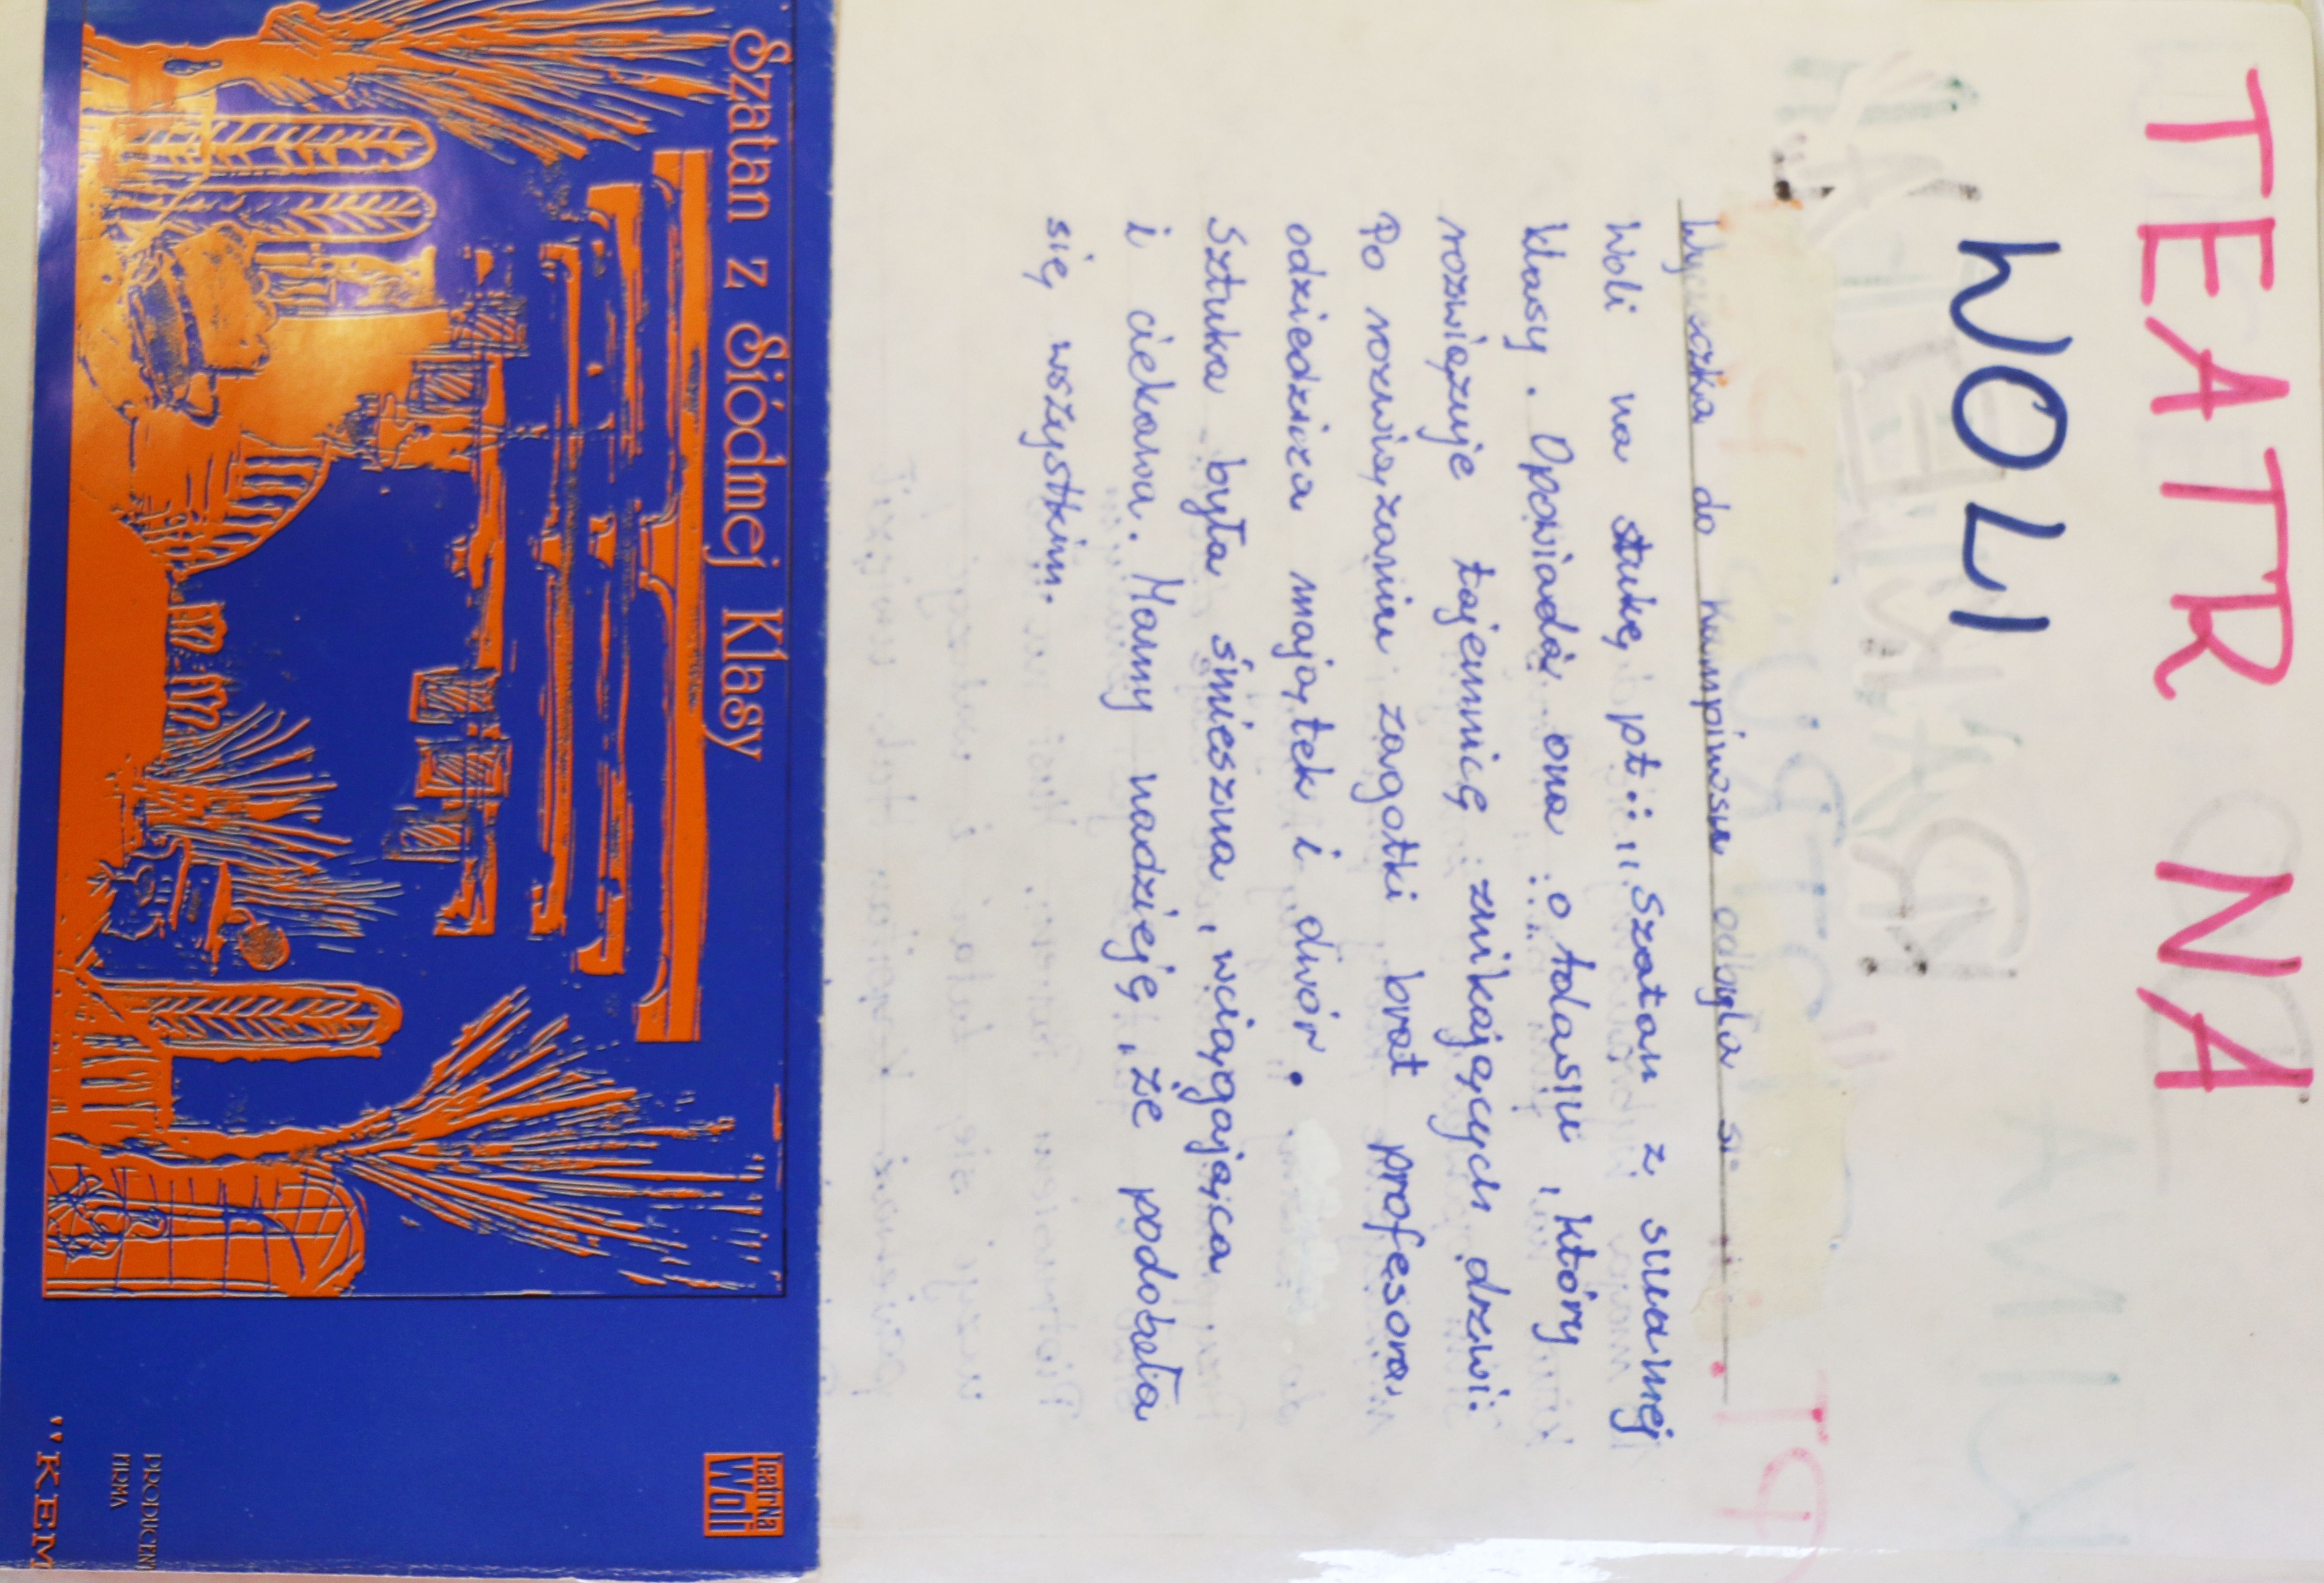 TEATR NA
WOLI
Wycieczka do Kampinosu odbyła
Woli na stukę pt.: „Szatan z suuamej
klasy. Opowiada ona o Adasiu, który
rozwiązuje tajemnicę znikających drzwi.
Po rozwiązaniu zagatki brat profesora
odziedzicza majątek i dwór.
Sztuka była śmieszna, wciągająca
i ciekawa. Mamy nadzieję, że podobała
się wszystkim.
Szatan z Siódmej Klasy
teatr Na
Woli
PRODUCEN
FIRMA
"KEM